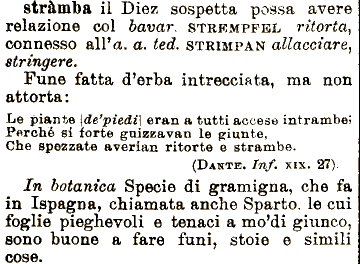 stràmba il Diez sospetta possa avere
relazione col bavar. STREMPFEL ritorta,
connesso all'a. a. ted. STRIMPAN allacciare,
stringere.
Fune fatta d'erba intrecciata, ma non
attorta:
Le piante |de'piedi| eran a tutti accese intrambe;
Perché sì forte guizzavan le giunte,
Che spezzate averian ritorte e strambe.
(DANTE. Inf. XIX. 27).
In botanica Specie di gramigna, che fa
in Ispagna, chiamata anche Sparto. le cui
foglie pieghevoli e tenaci a mo'di giunco,
sono buone a fare funi, stoie e simili
cose.